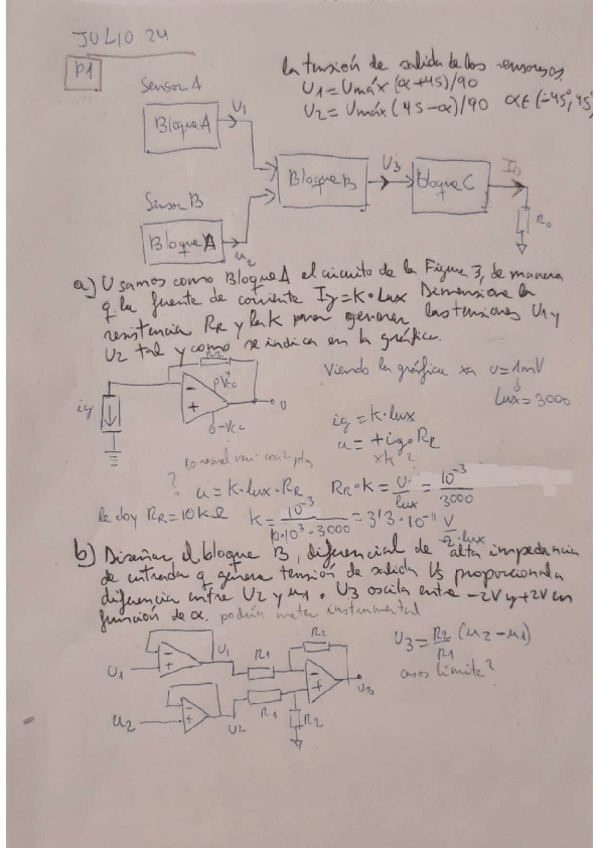 JULIO 24
P1
la tensión de salida de los sensores.
U1 = Umáx (α+45)/90
U2 = Umáx (45-α)/90 α∈(-45°, 45°)
Sensor A
Bloque A
U1
Bloque B
U3
Bloque C
Io
Ro
Sensor B
Bloque A
U2
a) Usamos como Bloque A el circuito de la Figura 3, de manera
q la fuente de corriente Ig = K·Lux Dimensione la
resistencia RR y la K para generar las tensiones U1 y
U2 tal y como se indica en la gráfica.
RR
+Vcc
-Vcc
ig
U
Viendo la gráfica xa U=1mV
Lux=3000
ig = K·lux
u = +ig·RR
xk ?
?
u = K·lux·RR RR·K = U/lux = 10^-3/3000
le doy RR=10KΩ K = 10^-3/10·10^3·3000 = 3'3·10^-11 V/Ω·lux
b) Diseñar el bloque B, diferencial de alta impedancia
de entrada q genera tensión de salida U3 proporcional a
diferencia entre U2 y U1. U3 oscila entre -2V y +2V en
función de α. podría meter instrumental
U1
U1
R1
R2
U3
U2
U2
R1
R2
U3 = R2/R1 (U2-U1)
casos límite?